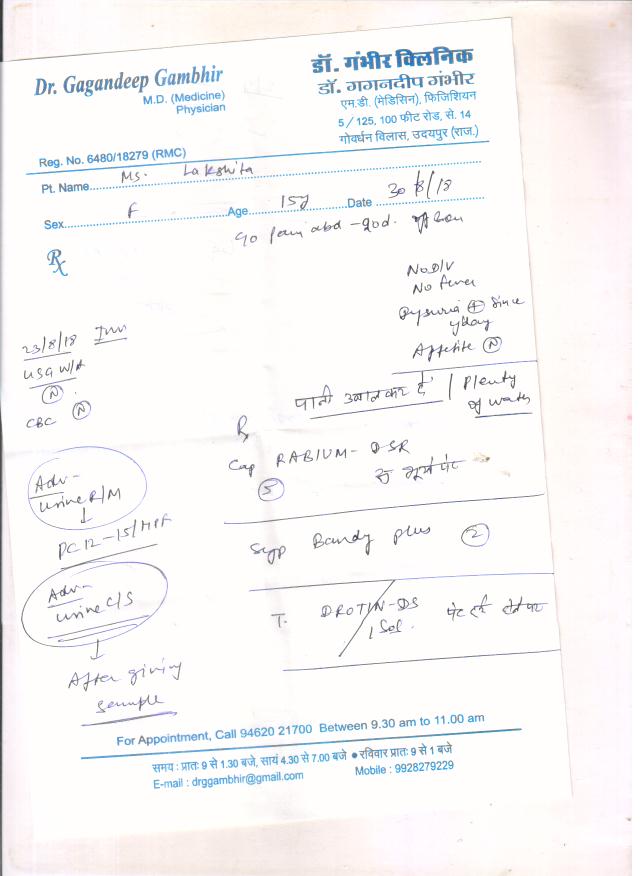 Dr. Gagandeep Gambhir
M.D. (Medicine)
Physician
डॉ. गंभीर क्लिनिक
डॉ. गगनदीप गंभीर
एम.डी. (मेडिसिन), फिजिशियन
5 / 125, 100 फीट रोड, से. 14
गोवर्धन विलास, उदयपुर (राज.)
Reg. No. 6480/18279 (RMC)
Pt. Name Ms. Lakshita
Sex F Age 15y Date 30/8/18
pain abd
No D/V
No fever
Dysuria + since
yday
Appetite N
23/8/18
USG W/A
N
CBC N
पानी उबालकर दें / Plenty
of water
Rx
Cap RABIUM-DSR
5
Adv-
Urine R/M
PC 12-15/HPF
Syp Bandy plus 2
Adv-
Urine C/S
T. DROTIN-DS
After giving
sample
For Appointment, Call 94620 21700 Between 9.30 am to 11.00 am
समय : प्रातः 9 से 1.30 बजे, सायं 4.30 से 7.00 बजे ● रविवार प्रातः 9 से 1 बजे
E-mail : drggambhir@gmail.com Mobile : 9928279229